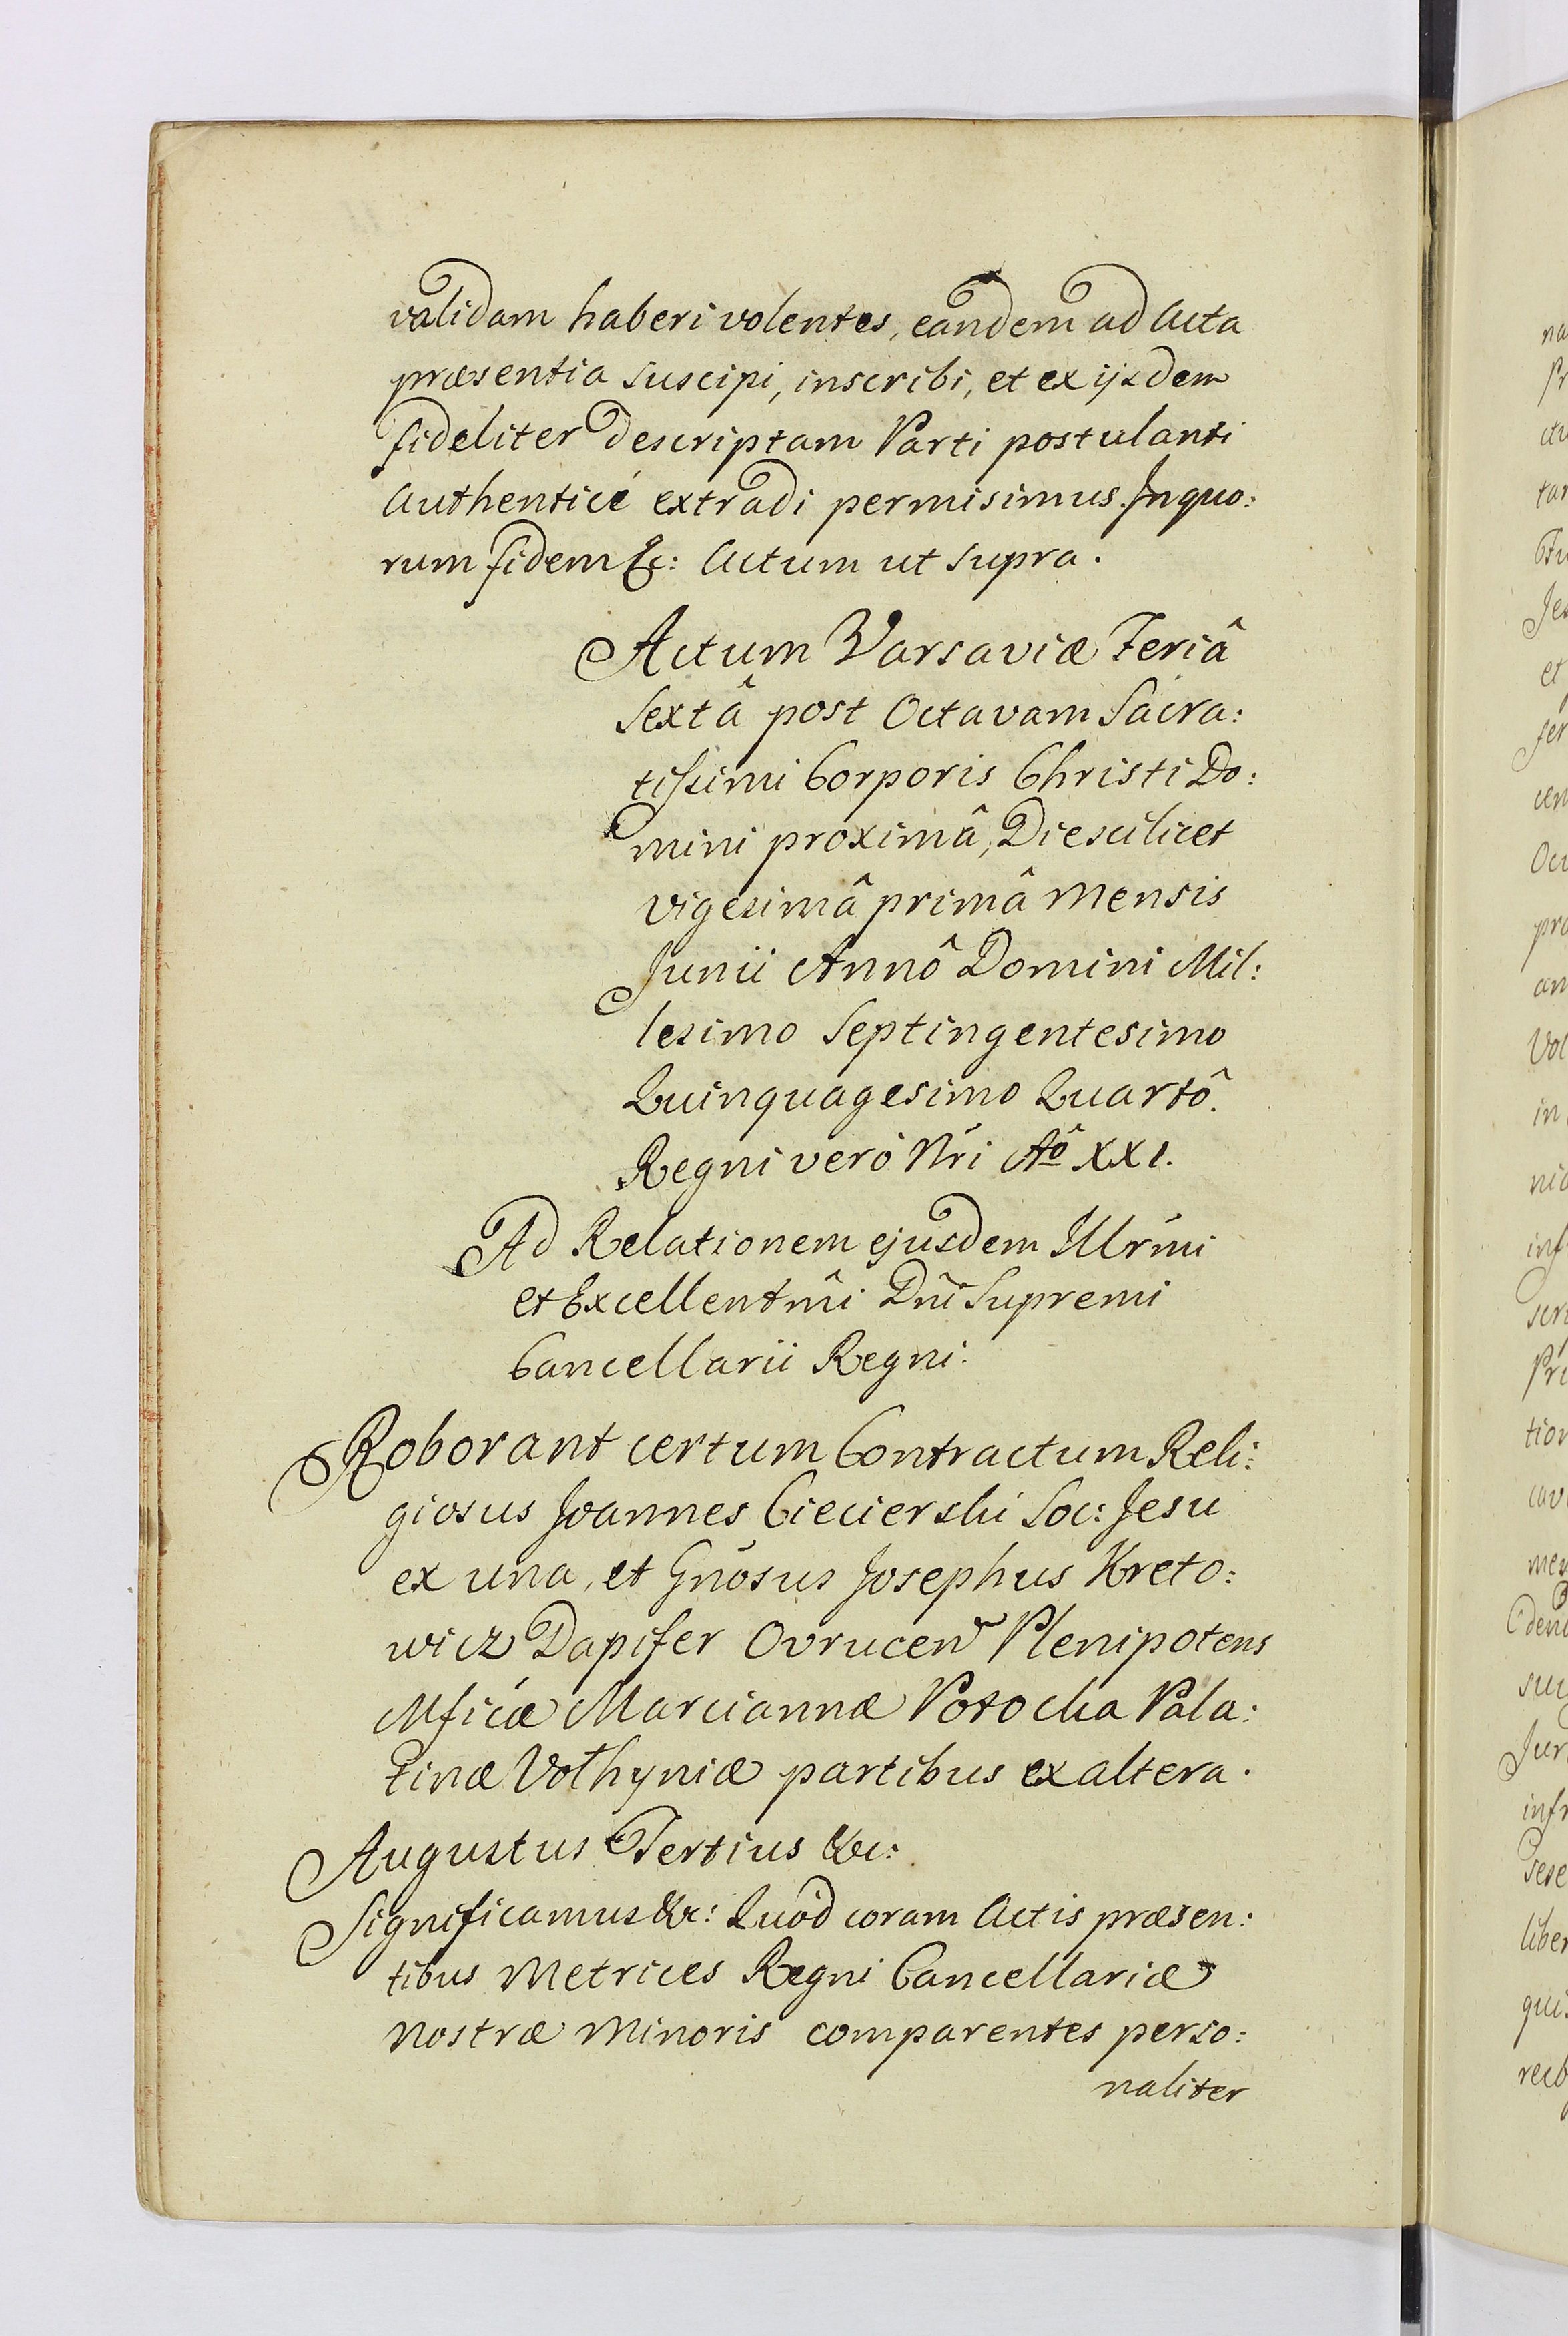 validam haberi volentes, eandem ad Acta
præsentia suscipi, inscribi, et ex ijsdem
fideliter descriptam Parti postulanti
Authenticè extradi permisimus. In quo:
rum fidem &c: Actum ut supra.
Actum Varsaviæ Feriâ
Sextâ post Octavam Sacra:
tissimi Corporis Christi Do:
mini proximâ, Die scilicet
vigesimâ primâ Mensis
Junii Annô Domini Mil:
lesimo Septingentesimo
Quinquagesimo Quartô.
Regni verò Nrĩ Aô XXI.
Ad Relationem ejusdem Illrm̃i
et Excellentm̃i Dnĩ Supremi
Cancellarii Regni.
Roborant certum Contractum Reli:
giosus Joannes Ciecierski Soc: Jesu
ex una, et Gnõsus Josephus Kreto:
wicz Dapifer Ovrucen̄ Plenipotens
Mficæ Marciannæ Potocka Pala:
tinæ Volhyniæ partibus ex altera.
Augustus Tertius &c:
Significamus &c: Quòd coram Actis præsen:
tibus Metrices Regni Cancellariæ
Nostræ Minoris comparentes perso:
naliter